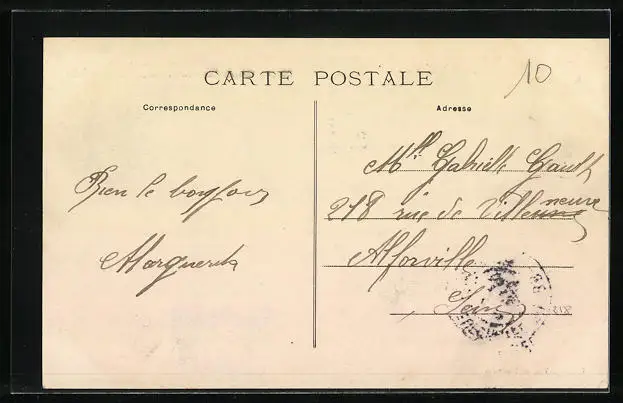 CARTE POSTALE
10
Correspondance
Adresse
Bien le bonjour
Marguerite
Mlle Gabrielle Gault
218 rue de Villeneuve
Alforville
Seine